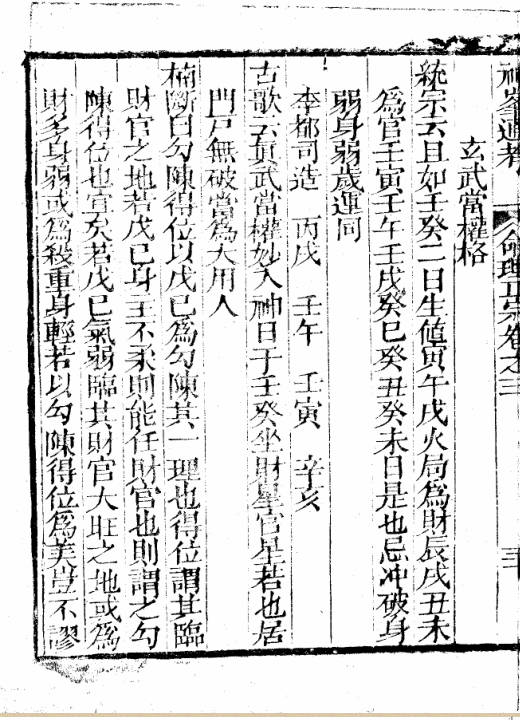 神峯通考 命理正宗卷之三 三
玄武當權格
統宗云且如壬癸二日生值寅午戌火局為財辰戌丑未
為官壬寅壬午壬戌癸巳癸丑癸未日是也忌冲破身
弱身弱歲運同
李都司造 丙戌 壬午 壬寅 辛亥
古歌云貟武當權妙入神日于壬癸坐財星官星若也居
門戶無破當為大用人
楠斷曰勾陳得位以戊巳為勾陳其一理也得位謂其臨
財官之地若戊巳身主不柔則能任財官也則謂之勾
陳得位也宜矣若戊巳氣弱臨其財官大旺之地或為
財多身弱或為殺重身輕若以勾陳得位為美豈不謬